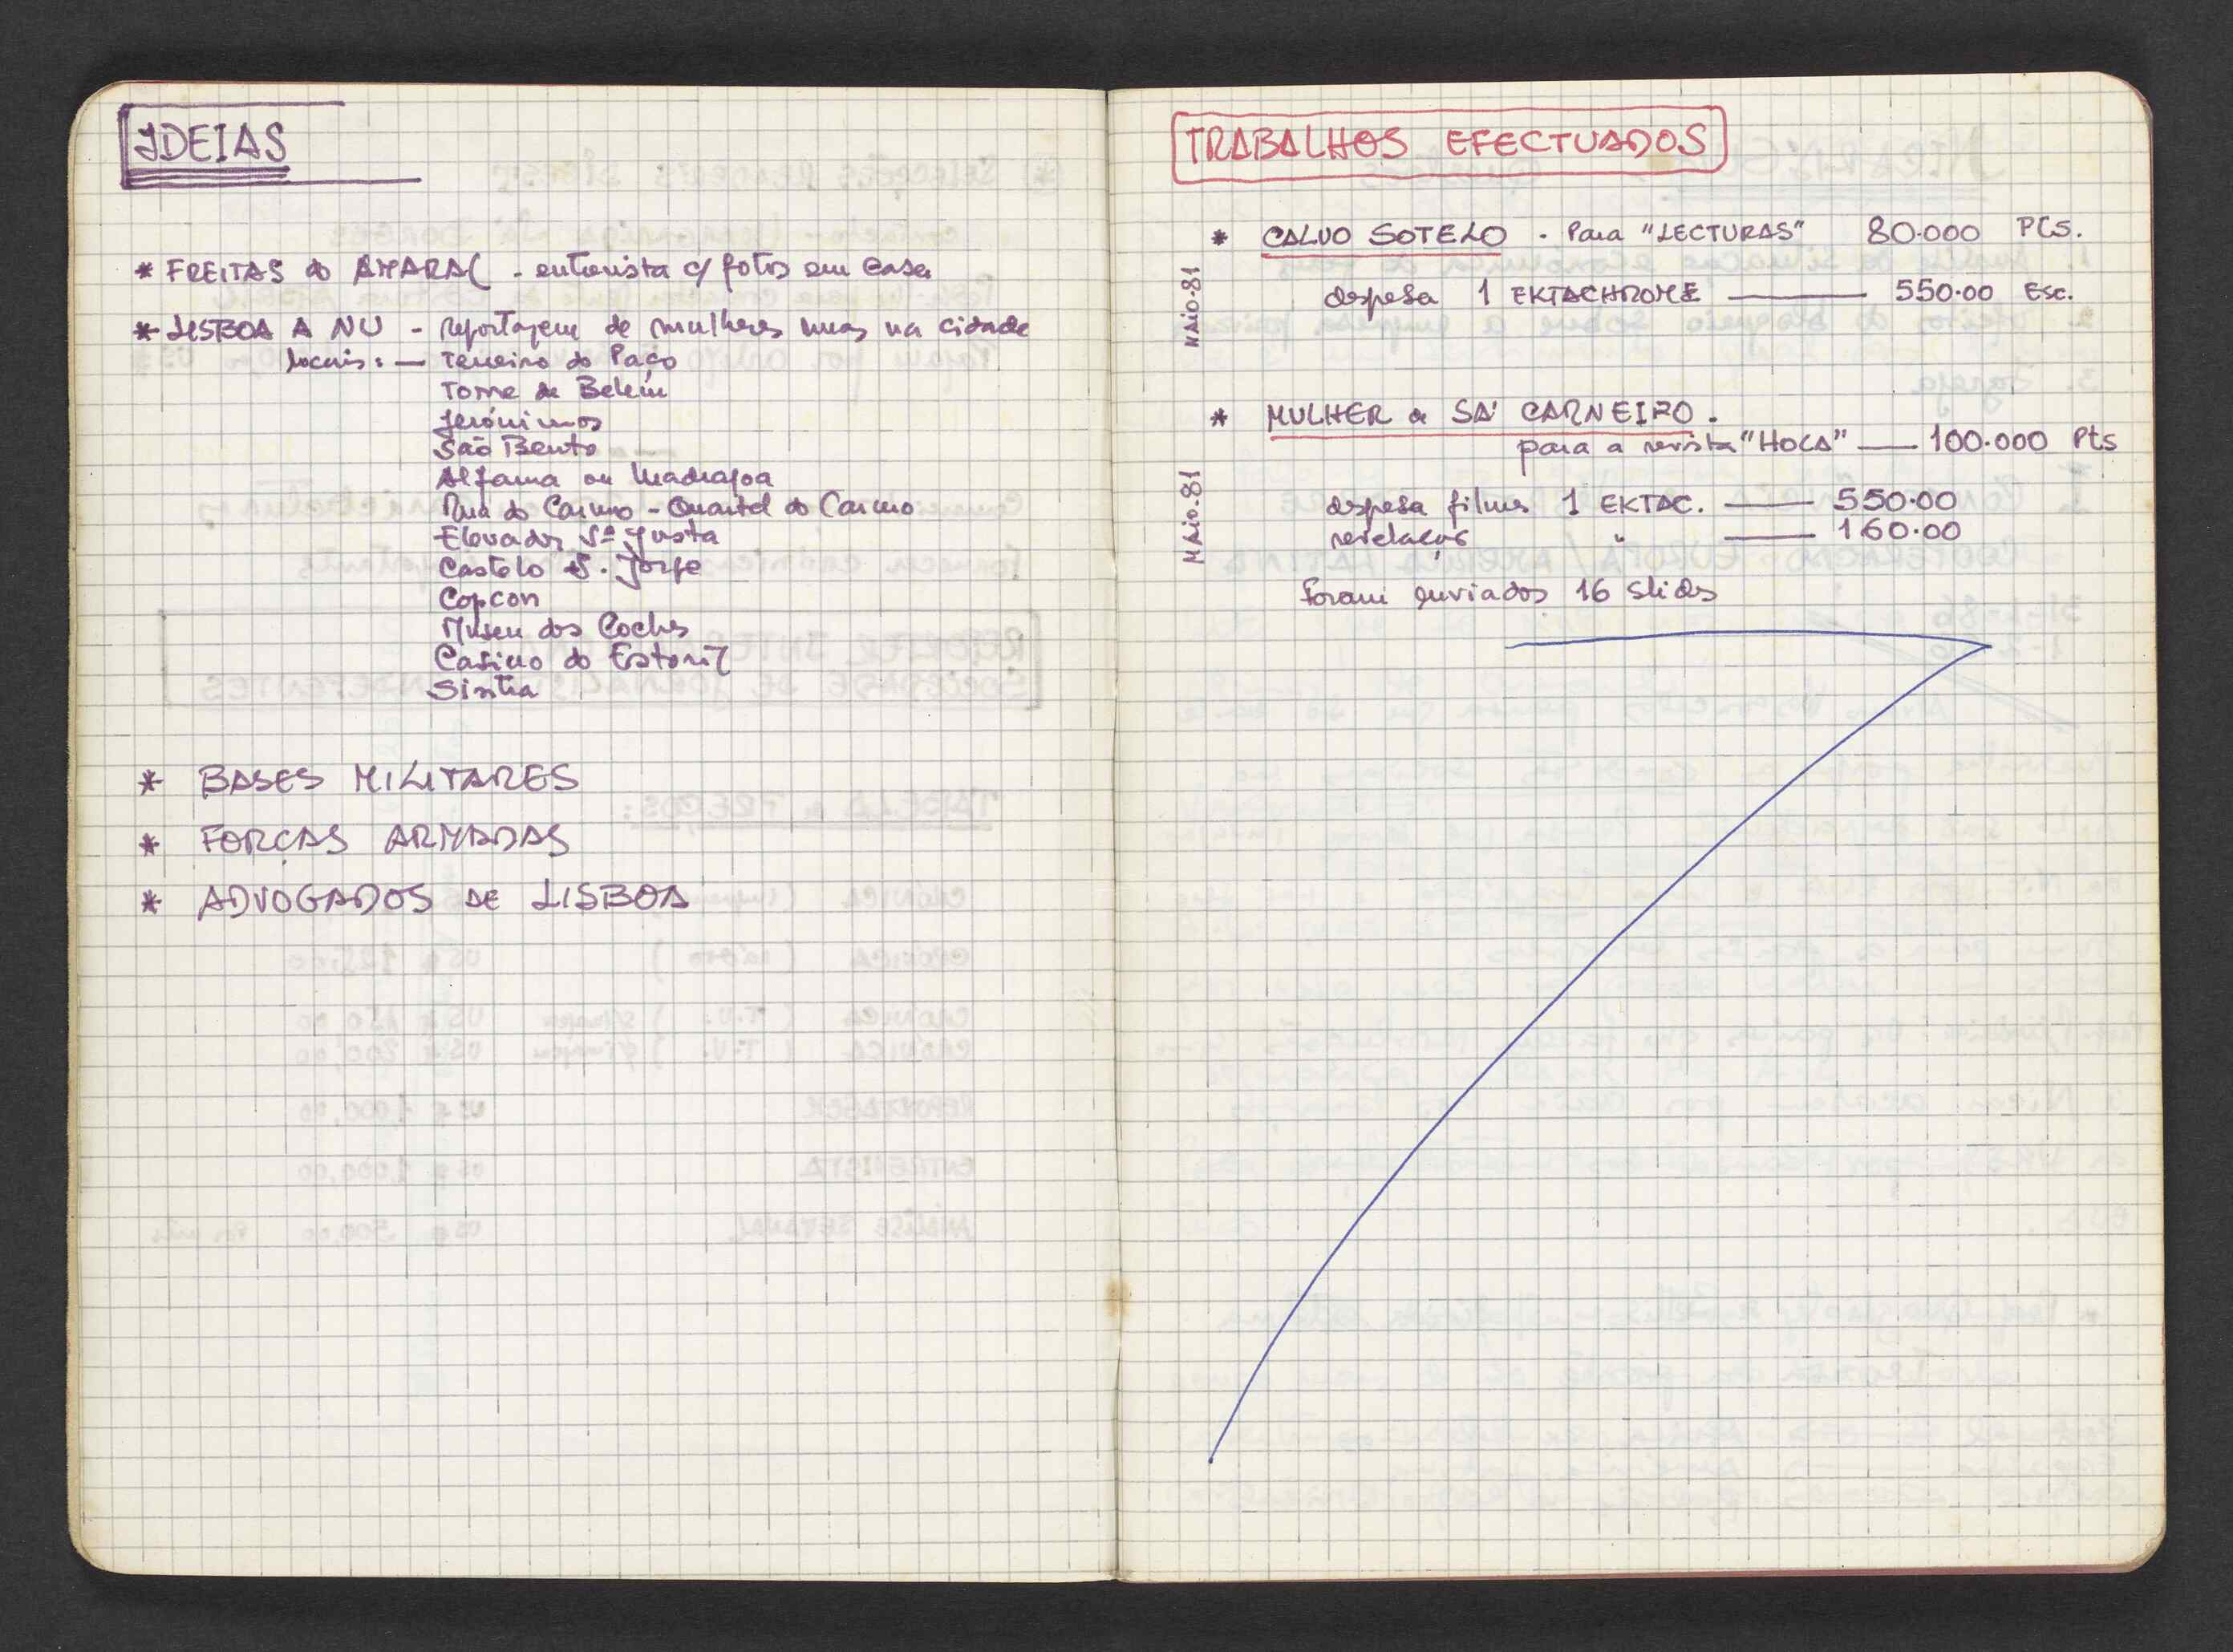 IDEIAS
* FREITAS do AMARAL - entrevista c/ fotos em casa
* LISBOA A NU - reportagem de mulheres nuas na cidade
locais: — Terreiro do Paço
Torre de Belém
Jerónimos
São Bento
Alfama ou Madragoa
Rua do Carmo - Quartel do Carmo
Elevador Sª Justa
Castelo S. Jorge
Copcon
Museu dos Coches
Casino do Estoril
Sintra
* BASES MILITARES
* FORÇAS ARMADAS
* ADVOGADOS DE LISBOA
TRABALHOS EFECTUADOS
MAIO.81
* CALVO SOTELO - Para "LECTURAS" 80.000 PTS.
despesa 1 EKTACHROME — 550.00 Esc.
MAIO.81
* MULHER de SÁ CARNEIRO.
para a revista "HOLA" — 100.000 Pts
despesa filmes 1 EKTAC. — 550.00
revelação " — 160.00
Foram enviados 16 slides